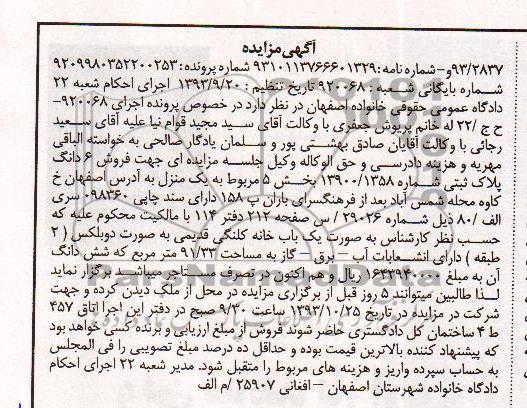 آگهی مزایده
۹۳/۲۸۳۷و-شماره نامه: ۹۳۱۰۱۱۳۷۶۶۶۰۱۳۲۹ شماره پرونده: ۹۲۰۹۹۸۰۳۵۲۲۰۰۲۵۳
شماره بایگانی شعبه : ۹۲۰۰۶۸ تاریخ تنظیم : ۱۳۹۳/۹/۲۰ اجرای احکام شعبه ۲۲
دادگاه عمومی حقوقی خانواده اصفهان در نظر دارد در خصوص پرونده اجرای ۹۲۰۰۶۸-
ح ج /۲۲ له خانم پریوش جعفری با وکالت آقای سید مجید قوام نیا علیه آقای سعید
رجائی با وکالت آقایان صادق بهشتی پور و سلمان یادگار صالحی به خواسته الباقی
مهریه و هزینه دادرسی و حق الوکاله وکیل جلسه مزایده ای جهت فروش ۶ دانگ
پلاک ثبتی شماره ۱۳۹۰۰/۱۳۵۸ بخش ۵ مربوط به یک منزل به آدرس اصفهان خ
کاوه محله شمس آباد بعد از فرهنگسرای باران پ ۱۵۸ دارای سند چاپی ۰۹۸۳۶۰ سری
الف /۸۰ ذیل شماره ۲۹۰۲۶ / س صفحه ۲۱۲ دفتر ۱۱۴ با مالکیت محکوم علیه که
حسب نظر کارشناس به صورت یک باب خانه کلنگی قدیمی به صورت دوبلکس ( ۲
طبقه ) دارای انشعابات آب – برق – گاز به مساحت ۹۱/۳۳ متر مربع که شش دانگ
آن به مبلغ ۱۶۴۳۹۴۰۰۰۰ ریال و هم اکنون در تصرف مستاجر میباشد برگزار نماید
لذا طالبین میتوانند ۵ روز قبل از برگزاری مزایده در محل از ملک دیدن کرده و جهت
شرکت در مزایده در تاریخ ۱۳۹۳/۱۰/۲۵ ساعت ۹/۳۰ صبح در دفتر این اجرا اتاق ۴۵۷
ط ۴ ساختمان کل دادگستری حاضر شوند فروش از مبلغ ارزیابی و برنده کسی خواهد بود
که پیشنهاد کننده بالاترین قیمت بوده و حداقل ده درصد مبلغ تصویبی را فی المجلس
به حساب سپرده واریز و هزینه های مربوط را متقبل شود. مدیر شعبه ۲۲ اجرای احکام
دادگاه خانواده شهرستان اصفهان – افغانی ۲۵۹۰۷ /م الف